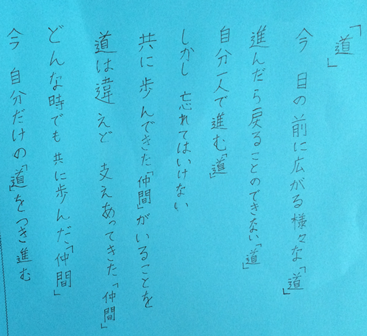 「道」
今 目の前に広がる様々な「道」
進んだら戻ることのできない「道」
自分一人で進む「道」
しかし 忘れてはいけない
共に歩んできた「仲間」がいることを
道は違えど 支えあってきた「仲間」
どんな時でも共に歩んだ「仲間」
今 自分だけの「道」をつき進む